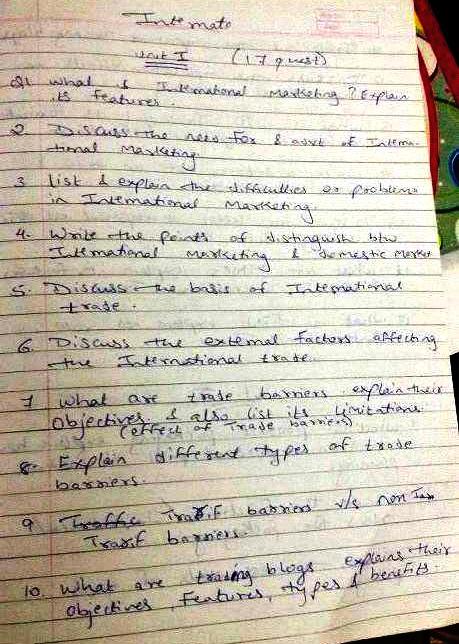 Internato
Unit I (17 quest)
Q1 What is International Marketing? Explain
its features.
2 Discuss the need for & advt of Interna-
tional Marketing.
3 list & explain the difficulties or problems
in International Marketing.
4. Write the points of distinguish btw
International marketing & domestic market
5. Discuss the basis of International
trade.
6. Discuss the external factors affecting
the International trade.
7 What are trade barriers explain their
Objectives. & also list its limitations
(effect of Trade barriers)
8. Explain different types of trade
barriers.
9 Traffic Trarif barriers v/s non
Trarif barriers.
10. What are trading blogs explains their
objectives, Features, types & benefits